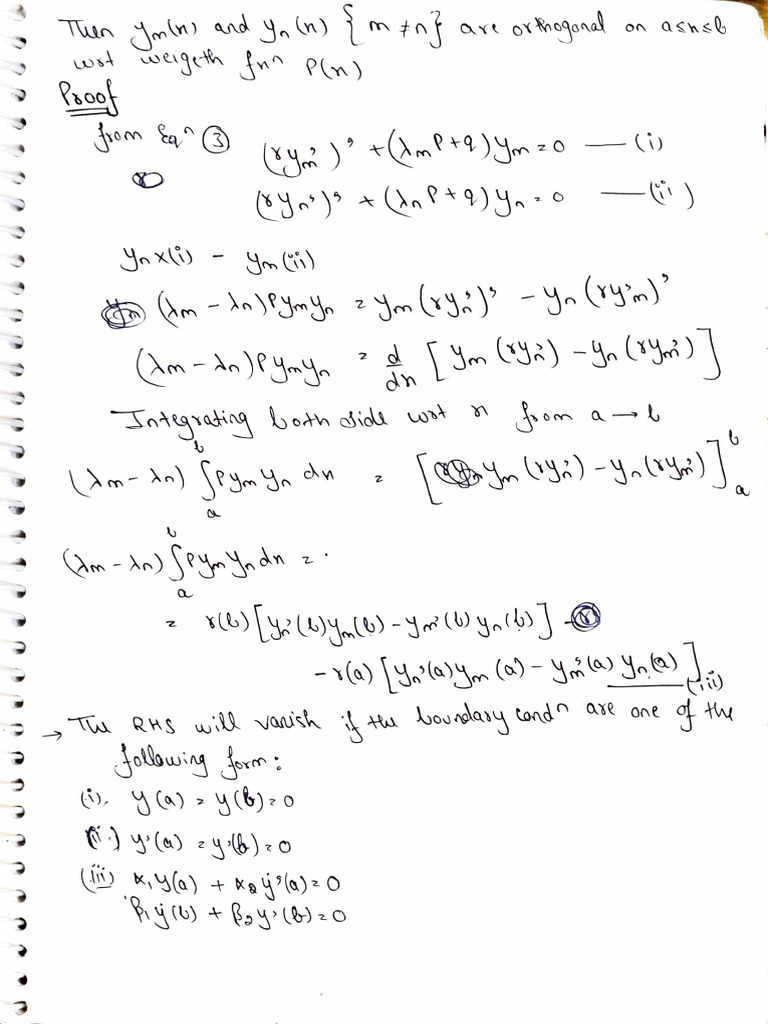 Then ym(n) and yn(n) {m ≠ n} are orthogonal on a≤n≤b
wrt weigeth fnⁿ P(n)
Proof
from Eqⁿ ③ (rym')' + (λmP+q)ym = 0 —— (i)
(ryn')' + (λnP+q)yn = 0 —— (ii)
yn×(i) - ym(ii)
(λm - λn)Pymyn = ym(ryn')' - yn(ry'm)'
(λm - λn)Pymyn = d/dn [ym(ryn') - yn(rym')]
Integrating both side wrt n from a → b
(λm - λn) ∫ₐᵇ Pym yn dn = [ym(ryn') - yn(rym')]ₐᵇ
(λm - λn) ∫ₐᵇ Pym yn dn = .
= r(b)[yn'(b)ym(b) - ym'(b)yn(b)] -
- r(a)[yn'(a)ym(a) - ym'(a)yn(a)] —(iii)
→ The RHS will vanish if the boundary condⁿ are one of the
following form:
(i). y(a) = y(b) = 0
(ii.) y'(a) = y'(b) = 0
(iii) α₁y(a) + α₂y'(a) = 0
β₁y(b) + β₂y'(b) = 0